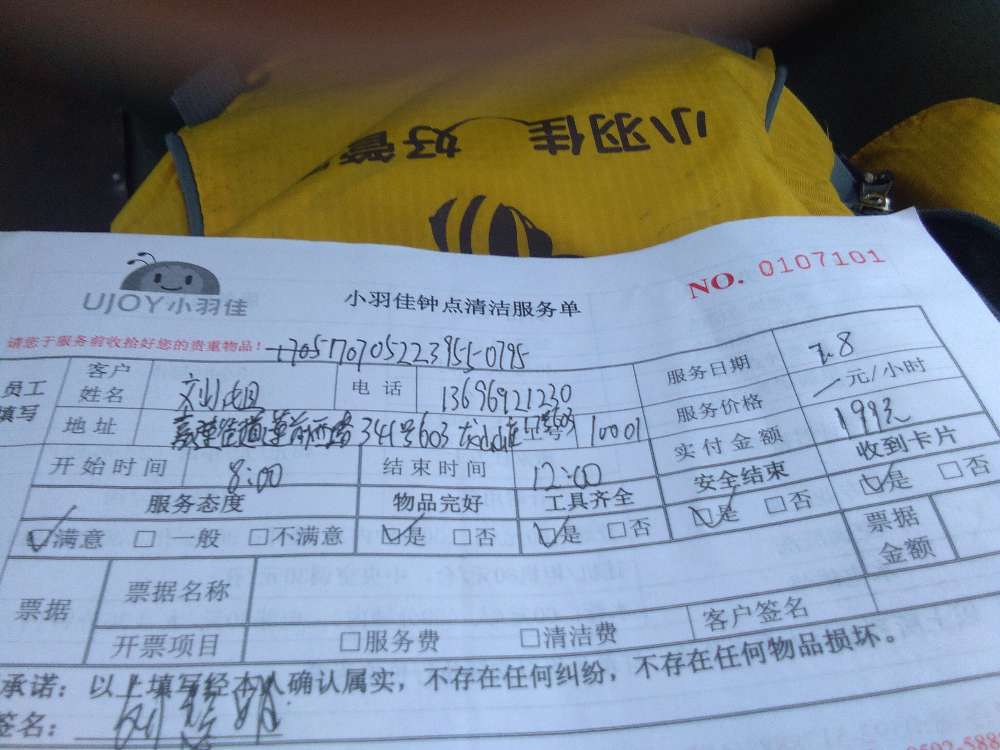 小羽佳 好管
UJOY小羽佳
小羽佳钟点清洁服务单
NO. 0107101
请您于服务前收拾好您的贵重物品！
员工填写 客户姓名 刘小姐 电话 13696921230 服务日期 7.8
服务价格 元/小时
地址 341号603 10001 实付金额 199元
开始时间 8:00 结束时间 12:00 安全结束 收到卡片
服务态度 物品完好 工具齐全 是 否 是 否
满意 一般 不满意 是 否 是 否 票据金额
票据 票据名称
开票项目 服务费 清洁费 客户签名
承诺：以上填写经本人确认属实，不存在任何纠纷，不存在任何物品损坏。
签名：